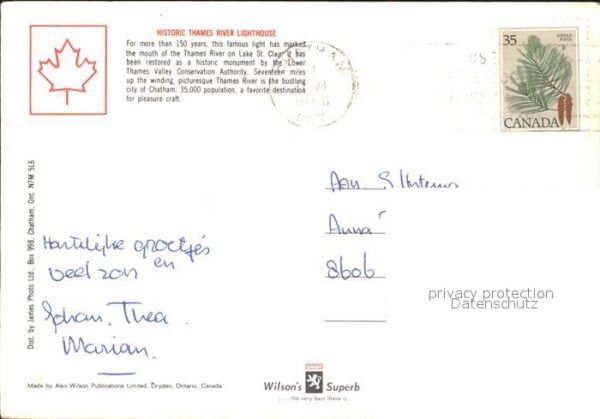 HISTORIC THAMES RIVER LIGHTHOUSE
For more than 150 years, this famous light has marked
the mouth of the Thames River on Lake St. Clair. It has
been restored as a historic monument by the Lower
Thames Valley Conservation Authority. Seventeen miles
up the winding, picturesque Thames River is the bustling
city of Chatham, 35,000 population, a favorite destination
for pleasure craft.
35
CANADA
Dist. by James Photo Ltd., Box 998, Chatham, Ont. N7M 5L6
Hartelijke groetjes
en
veel zon
Johan. Thea.
Marian.
Aan
Anna
8606
privacy protection
Datenschutz
Made by Alex Wilson Publications Limited, Dryden, Ontario, Canada
Wilson's Superb
... the very best there is